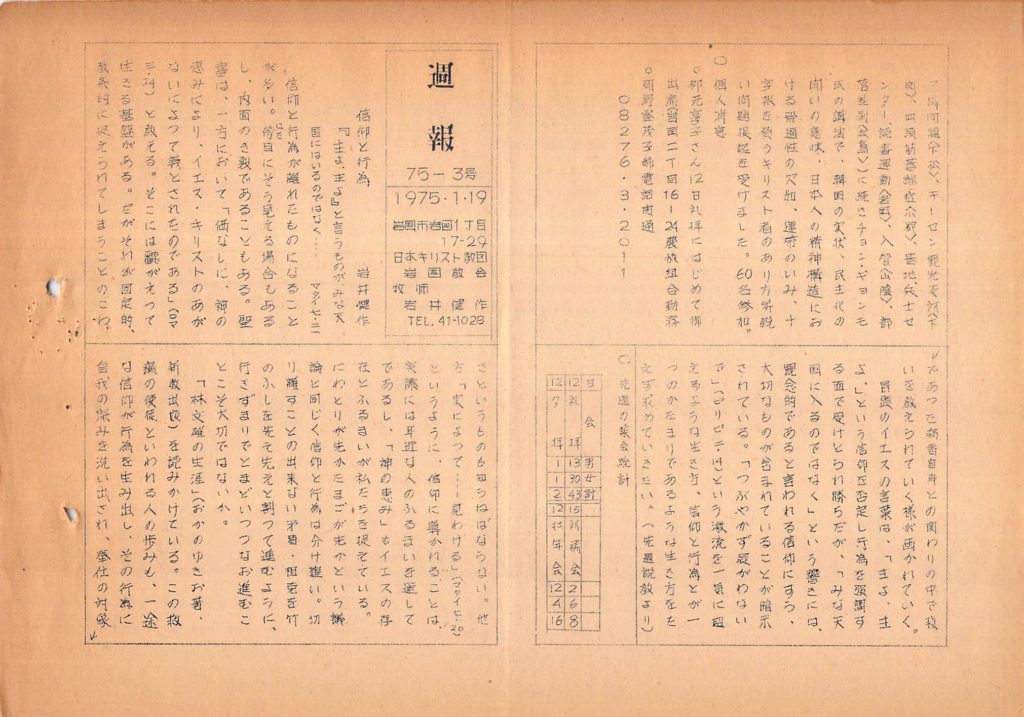 週報
75-3号
1975・1・19
岩国市岩国1丁目
17-29
日本キリスト教団
岩国教会
牧師
岩井健作
TEL.41-1028
信仰と行為
岩井健作
『主よ、主よ』と言うものがみな天
国にはいるのではなく……
マタイ七・二一
信仰と行為が離れたものになること
が多い。傍目にそう見える場合もある
はた
し、内面のき裂であることもある。聖
書は、一方において「価なしに、神の
恵みにより、イエス・キリストのあが
ないによって義とされたのである」(ロマ
三・24)と教える。そこには
生きる基盤がある。だがそれが固定的、
教条的に捉えられてしまうことのこわ
さというものも知らねばならない。他
方「実によって……見わける」(マタイ七・20)
というように、信仰に導かれることは、
実際には身近な人のふるまいを通して
であるし、「神の恵み」もイエスの存
在とふるまいが私たちを捉えている。
にわとりが先かたまごが先かという議
論と同じく信仰と行為は分け難い。切
り離すことの出来ない矛盾・相克を竹
のふしを先を先えと割って進むように、
行きずまりでとまどいつつなお進むこ
とこそ大切ではないか。
「林文雄の生涯」(おかのゆきお著・
新教出版)を読みかけている。この救
癩の使徒といわれる人の歩みも、一途
な信仰が行為を生み出し、その行為に
自我の染みを洗い出され、奉仕の対象
であった癩者自身との関わりの中で救
いを教えられていく様が画かれていく。
冒頭のイエスの言葉は、「主よ、主
よ、」という信仰を否定し行為を強調す
る面で受けとられ勝ちだが、「みな天
国に入るのではなく」という響きには、
観念的であると言われる信仰にすら、
大切なものが含まれていることが暗示
されている。「つぶやかず疑がわない
で」(ピリピ二・14)という激流を一気に超
えるような生き方、信仰と行為とが一
つのかたまりであるような生き方をた
えず求めていきたい。(先週説教より)
〇先週の集会統計
日 会 男 女 計
12 礼拝 13 30 43
12 夕拝 1 1 2
15 祈祷会 2 6 8
12 壮年会 12 4 16
ンター読書運動
落差別(広島)に続きチョン・ギョンモ
氏の講演で、韓国の実状、民主化の
闘いの意味、日本人の精神構造にお
ける普遍性の欠如、運帝のいみ、十
字架を負うキリスト者のあり方等鋭
い問題提起を受けました。60名参加。
〇個人消息
。柳元享子さん12日礼拝にはじめて御
出席(岩国二丁目16-24農機組合勤務
。田野盛茂子郎電話開通
08276・3・2011